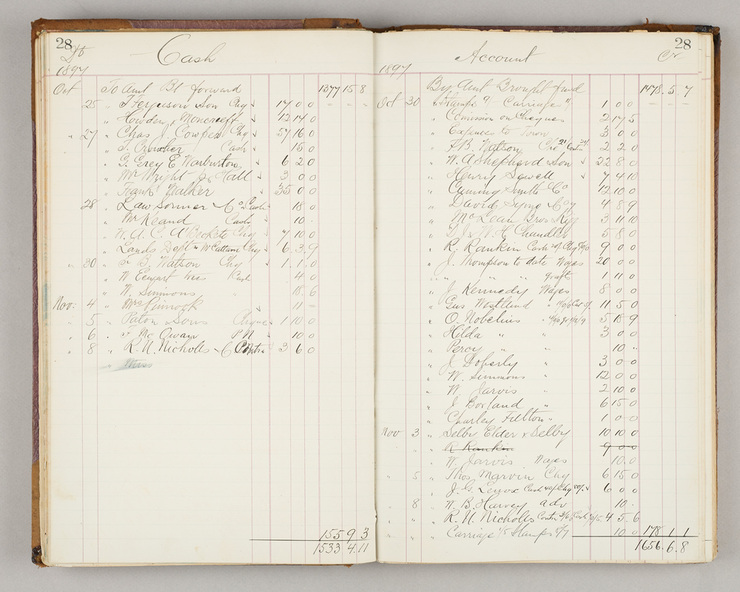 28
Dr
Cash
1897
Oct To Amt Bt forward 1377 15 8
25 " T Ferguson Son Chq 17 0 0
" Howden & Moncrieff 12 14 0
27 " Chas J Cowper Chq 57 16 0
" Cash 15 0
" G Grey E Warburton 6 20
" Wm Wright J Hall 3 0 0
" Frank Walker 35 0 0
28 " Law Somner & Co Cash 18 0
" Wm Keand Cash 10
" W. U. C. A Chq 7 10 0
" Lands Dept Chq 6 3 9
30 " F B Watson Chq 1 1 0
" W Cash 4 0
" W Simmons 18 6
Nov 4 " Mrs Pinnock " 11 -
5 " Paton Sons 1 10 0
6 " Mc Ewan PN 10 0
8 " R. U. Nicholls Contra 3 6 0
155 9 3
1533 4 11
28
Account
Cr
1897
By Amt Brought fwd 1478 5 7
Oct 30 " Stamps Carriage 1 0 0
" Comission on Cheques 2 17 5
" Expences to Town 3 0 0
" F B Watson 2 2 0
" W. A Shepherd Son 22 8 0
" Henry Sewell 7 4 10
" Cuming Smith Co 12 10 0
" David Syme Coy 4 8 9
" McLean Bros Rigg 3 11 10
" J & W H Chandler 5 8 0
" R. Rankin Cash 9 0 0
" J. Thompson to date Wages 20 0 0
" " " 1 11 0
" J Kennedy Wages 8 0 0
" Gus Westlund 11 5 0
" O. Nobelius 5 18 9
" Hilda " 3 0 0
" Percy " 10 -
" J. Doherly " 3 0 0
" W. Simmons " 12 0 0
" W Jarvis " 2 10 0
" J Borland " 6 15 0
" Charley Fulton 1 0 0
Nov 3 " Selby Elder & Selby 10 10 0
" R Rankin 9 0 0
" W. Jarvis Wages 10 0
5 " Thos Marvin Chq 6 15 0
" J. G. Cash 6 0 0
8 " W. B. Harvey adv 10 -
" R. U. Nicholls Contra 4 5 6
" Carriage & Stamps 10 0 178 1 1
1656 6 8